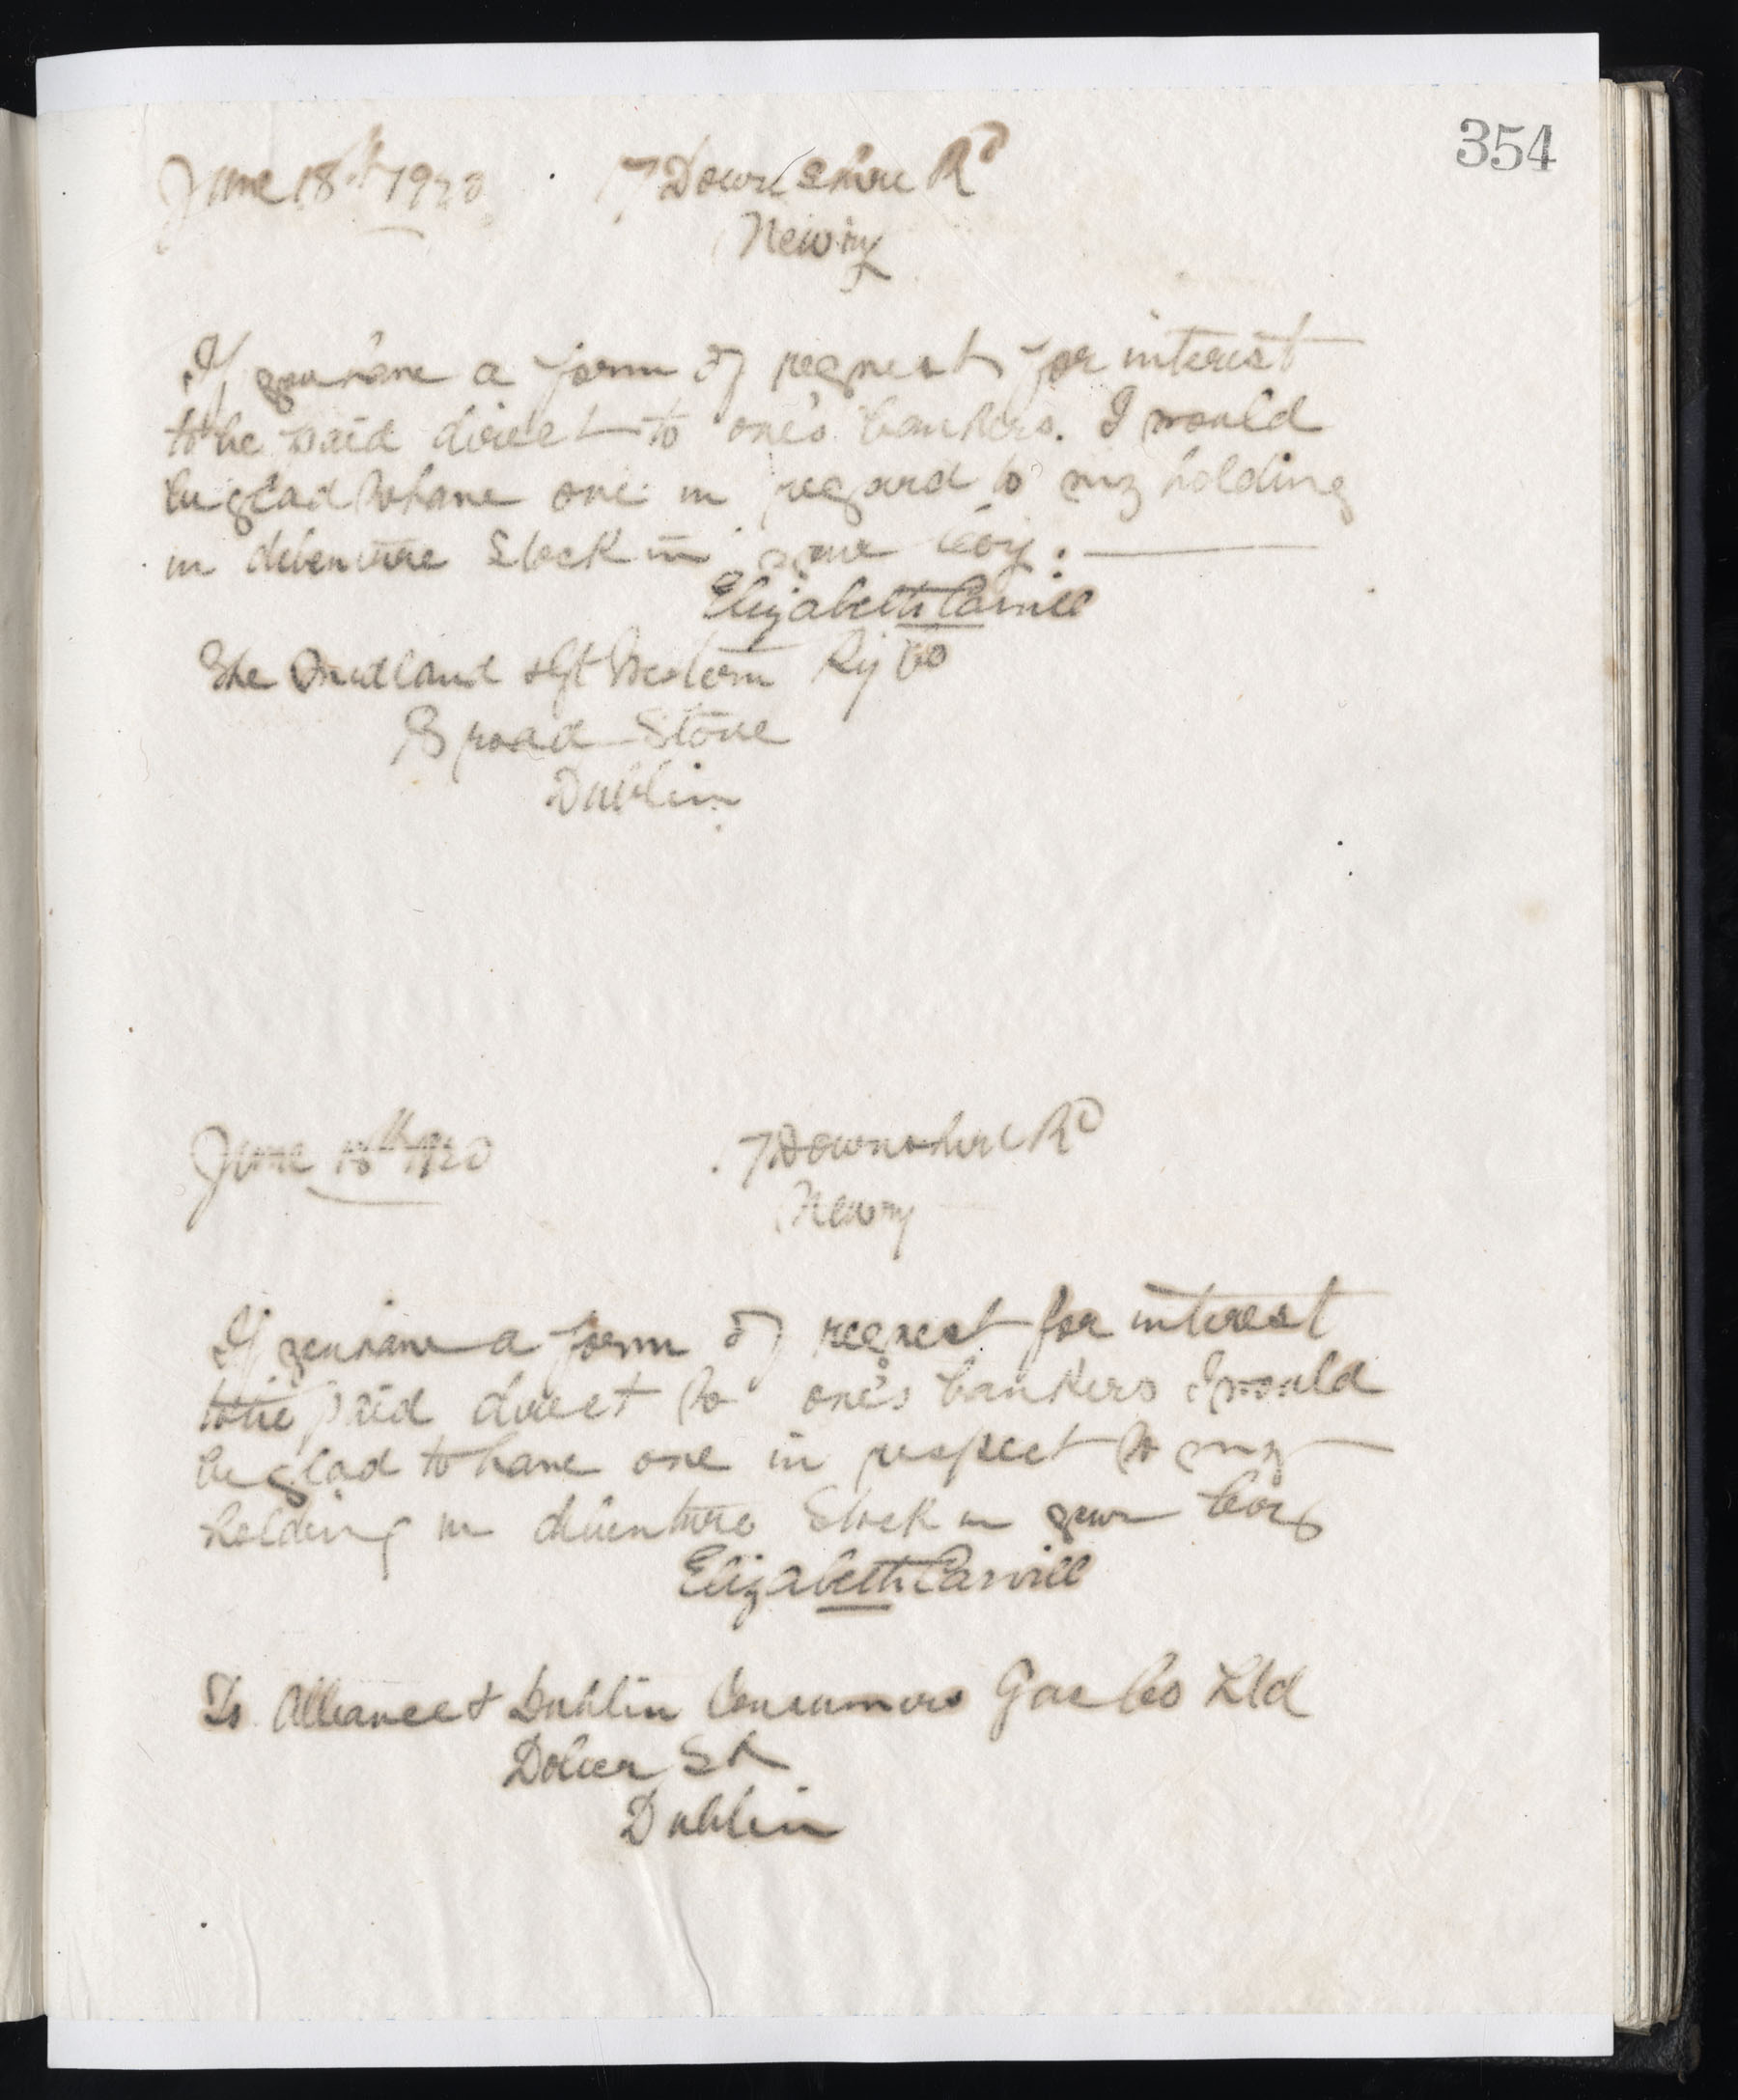 354
June 18th 1920 7 Downshire Rd
Newry
If you have a form of request for interest
to be paid direct to one's bankers. I would
be glad to have one in regard to my holding
in debenture Stock in your Coy.
Elizabeth Carvill
The Midland & Gt Western Ry Co
Broad Stone
Dublin
June 18th 1920 7 Downshire Rd
Newry
If you have a form of request for interest
to be paid direct to one's bankers I would
be glad to have one in respect to my
holding in debenture Stock in your Coy
Elizabeth Carvill
To Alliance & Dublin Consumers Gas Co Ltd
Dolier St
Dublin